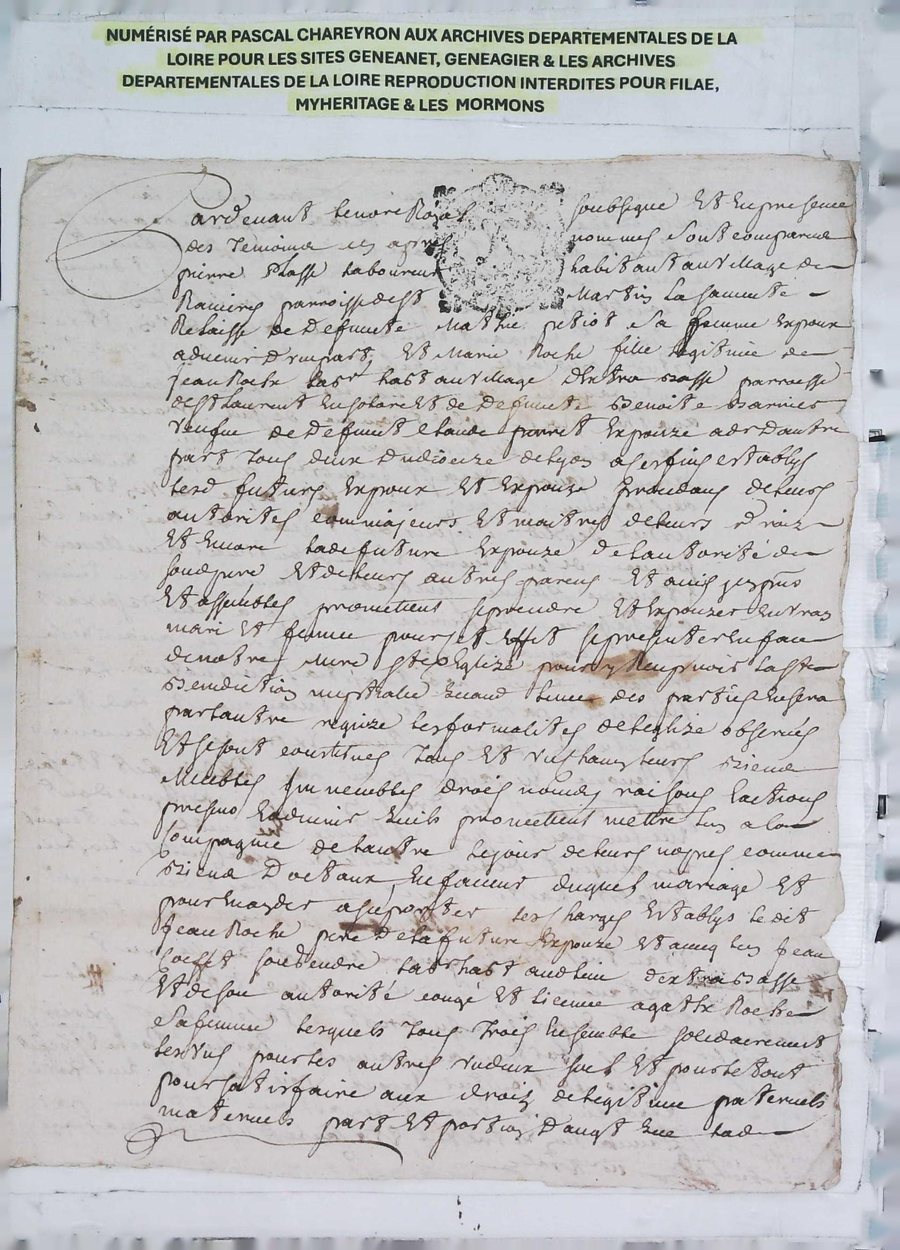 NUMÉRISÉ PAR PASCAL CHAREYRON AUX ARCHIVES DEPARTEMENTALES DE LA
LOIRE POUR LES SITES GENEANET, GENEAGIER & LES ARCHIVES
DEPARTEMENTALES DE LA LOIRE REPRODUCTION INTERDITES POUR FILAE,
MYHERITAGE & LES MORMONS
Pardevant lenore Royal soubsigné Et En presence
des Temoins cy apres nommes sont comparus
pierre Plasse laboureur habitant au village de
parroisse de St Martin La Sauveté
Relaisse de Deffuncte Mathie petiot sa femme Expoux
advenir D'unpart, Et Marie Roche fille legitime de
Jean Roche labr habt au village parroisse
de St Laurent Et de Deffuncte Benoite
veufve de Deffunt Claude Expouze adv D'autre
part tous deux Dudiocize de Lyon establys
lesd futurs Expoux Et Expouze de leurs
autorités comme majeurs Et maitres de leurs droiz
Et Encore lade future Expouze De l'autorité de
sondpere Et de leurs autres parens Et amis
Et assembles promettent se prendre Et Expouzer En vray
mari Et femme pour cet Effet se presenter En face
de notre mere Ste Eglize pour y la
Benediction nuptialle quand l'une des parties En sera
par l'autre requize les formalités de leglize observés
Et se sont constitués tous Et leurs Biens
Meubles Immeubles drois noms raisons Et actions
presens Et advenir quils promettent mettre
compagnie de l'autre le jour de leurs nopces comme
Biens Dotaux, En faveur duquel mariage Et
pour En ayder a suporter les charges Establys ledit
Jean Roche pere De la future Expouze Et avecq luy Jean
son gendre labr habt audlieu
Et de son autorité congé Et licence agathe Roche
sa femme lesquels tous trois Ensemble solidairement
les uns pour les autres seul Et pour le tout
pour satisfaire aux droiz de legitime paternels
maternels part Et portion D'augt que lad